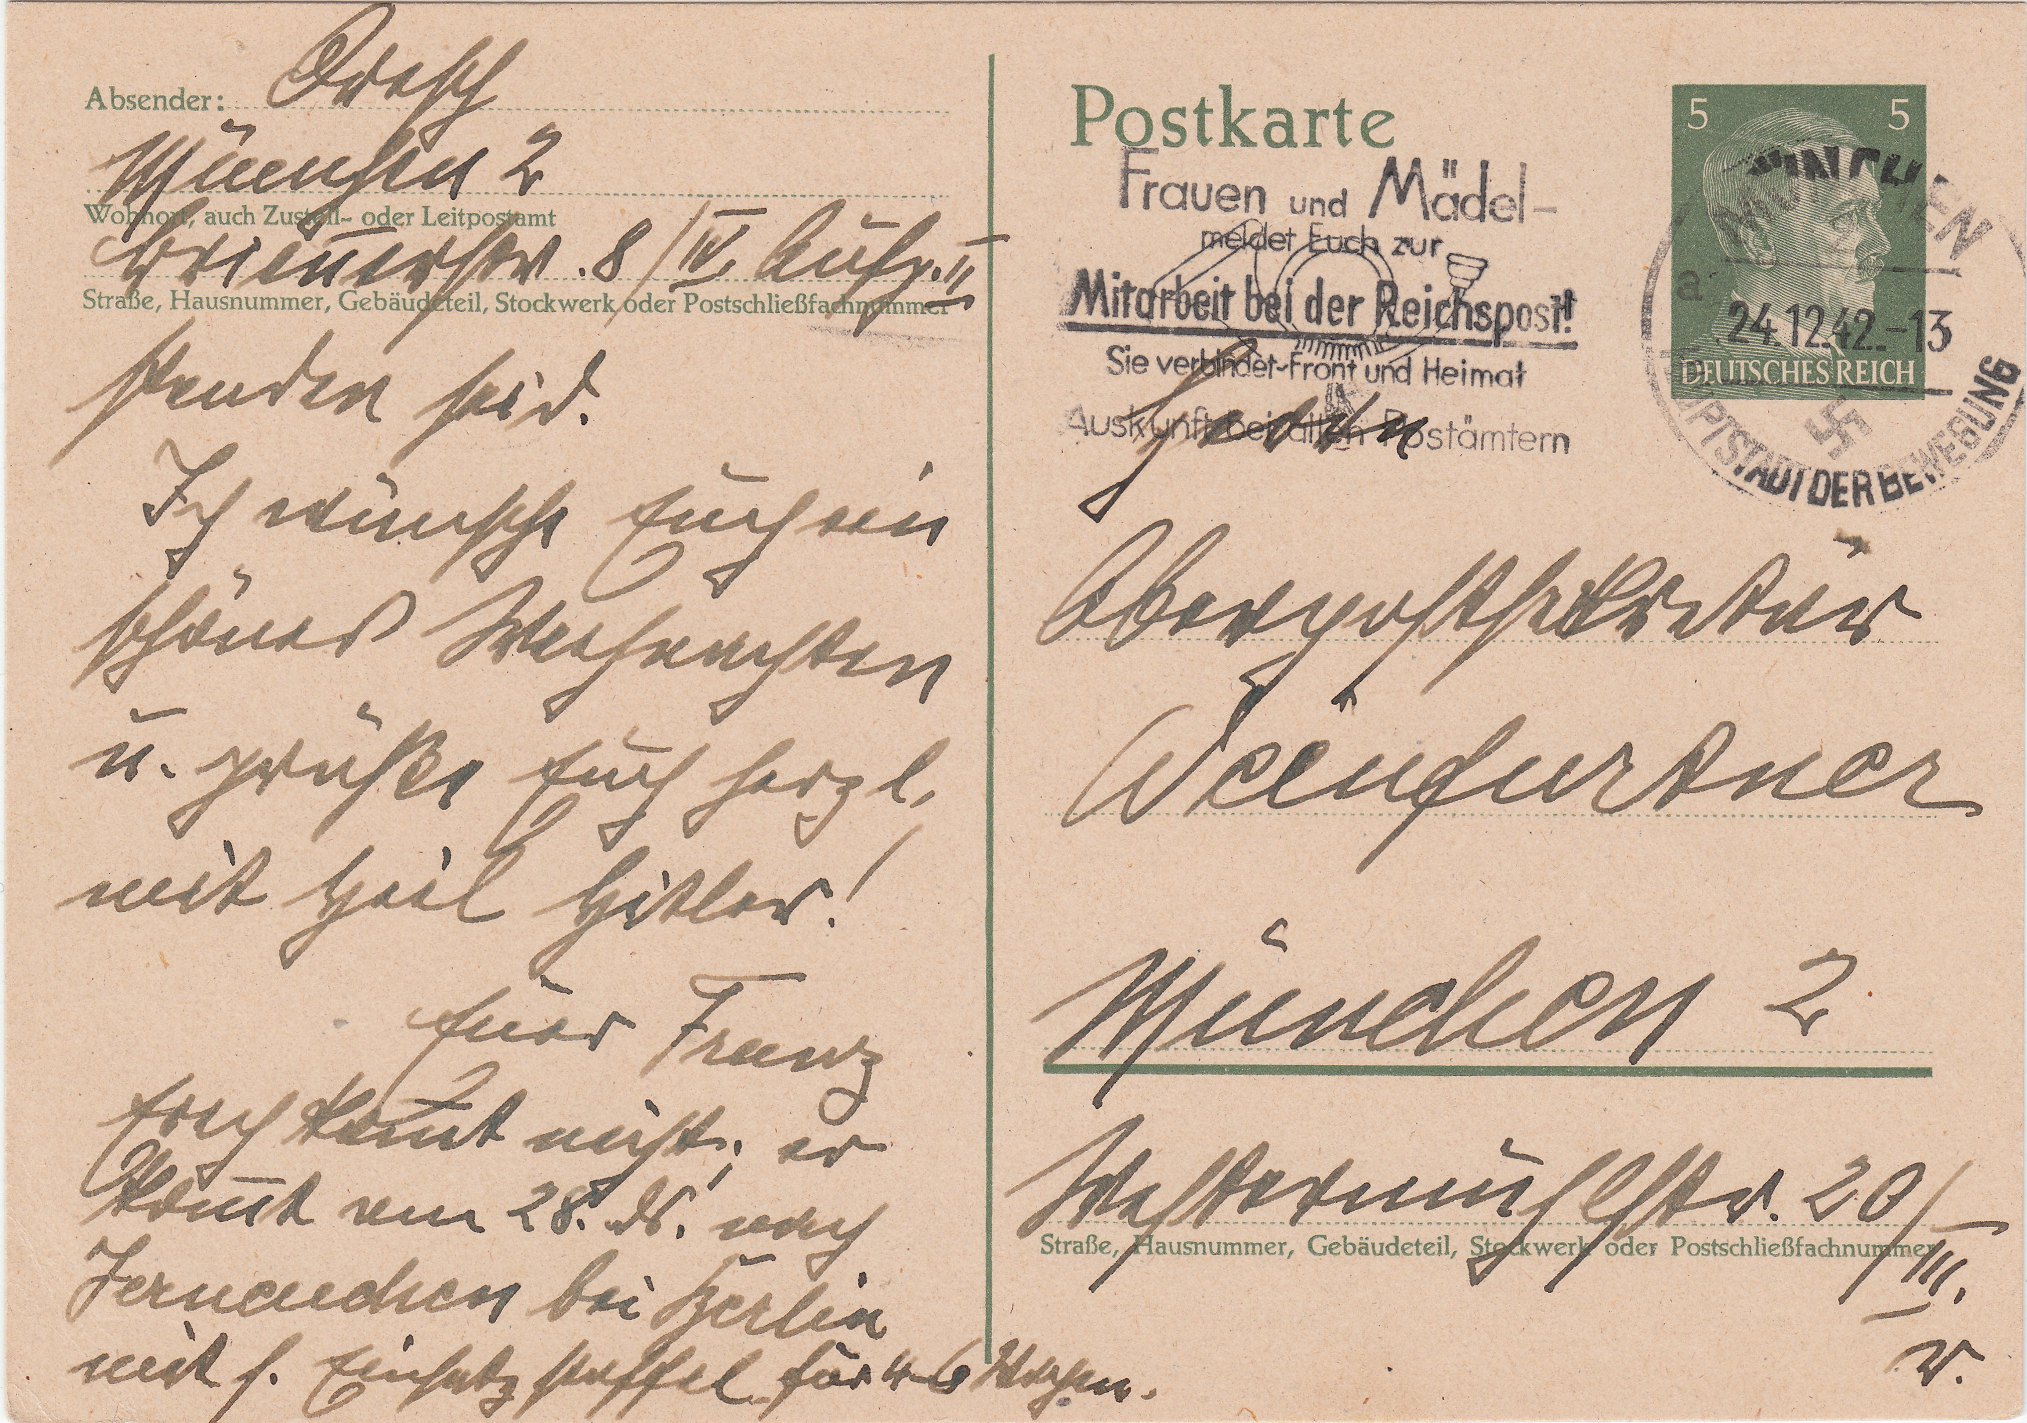 Absender: Dresch
München 2
Wohnort, auch Zustell- oder Leitpostamt
Briennerstr. 8/IV. Aufg. II
Straße, Hausnummer, Gebäudeteil, Stockwerk oder Postschließfachnummer
standen seid.
Ich wünsche Euch ein
schönes Weihnachten
u. grüße Euch herzl.
mit Heil Hitler!
Euer Franz
Erich kommt nicht, er
kommt am 28. ds. nach
bei Berlin
mit s. Einsatzstaffel für 4-6 Wochen.
Postkarte
Frauen und Mädel-
meldet Euch zur
Mitarbeit bei der Reichspost!
Sie verbindet Front und Heimat
Auskunft bei allen Postämtern
5 5
DEUTSCHES REICH
MÜNCHEN
a
24.12.42.-13
HAUPTSTADT DER BEWEGUNG
Herrn
Oberpostsekretär
Weinfurtner
München 2
Westermühlstr. 20/III.
Straße, Hausnummer, Gebäudeteil, Stockwerk oder Postschließfachnummer
r.